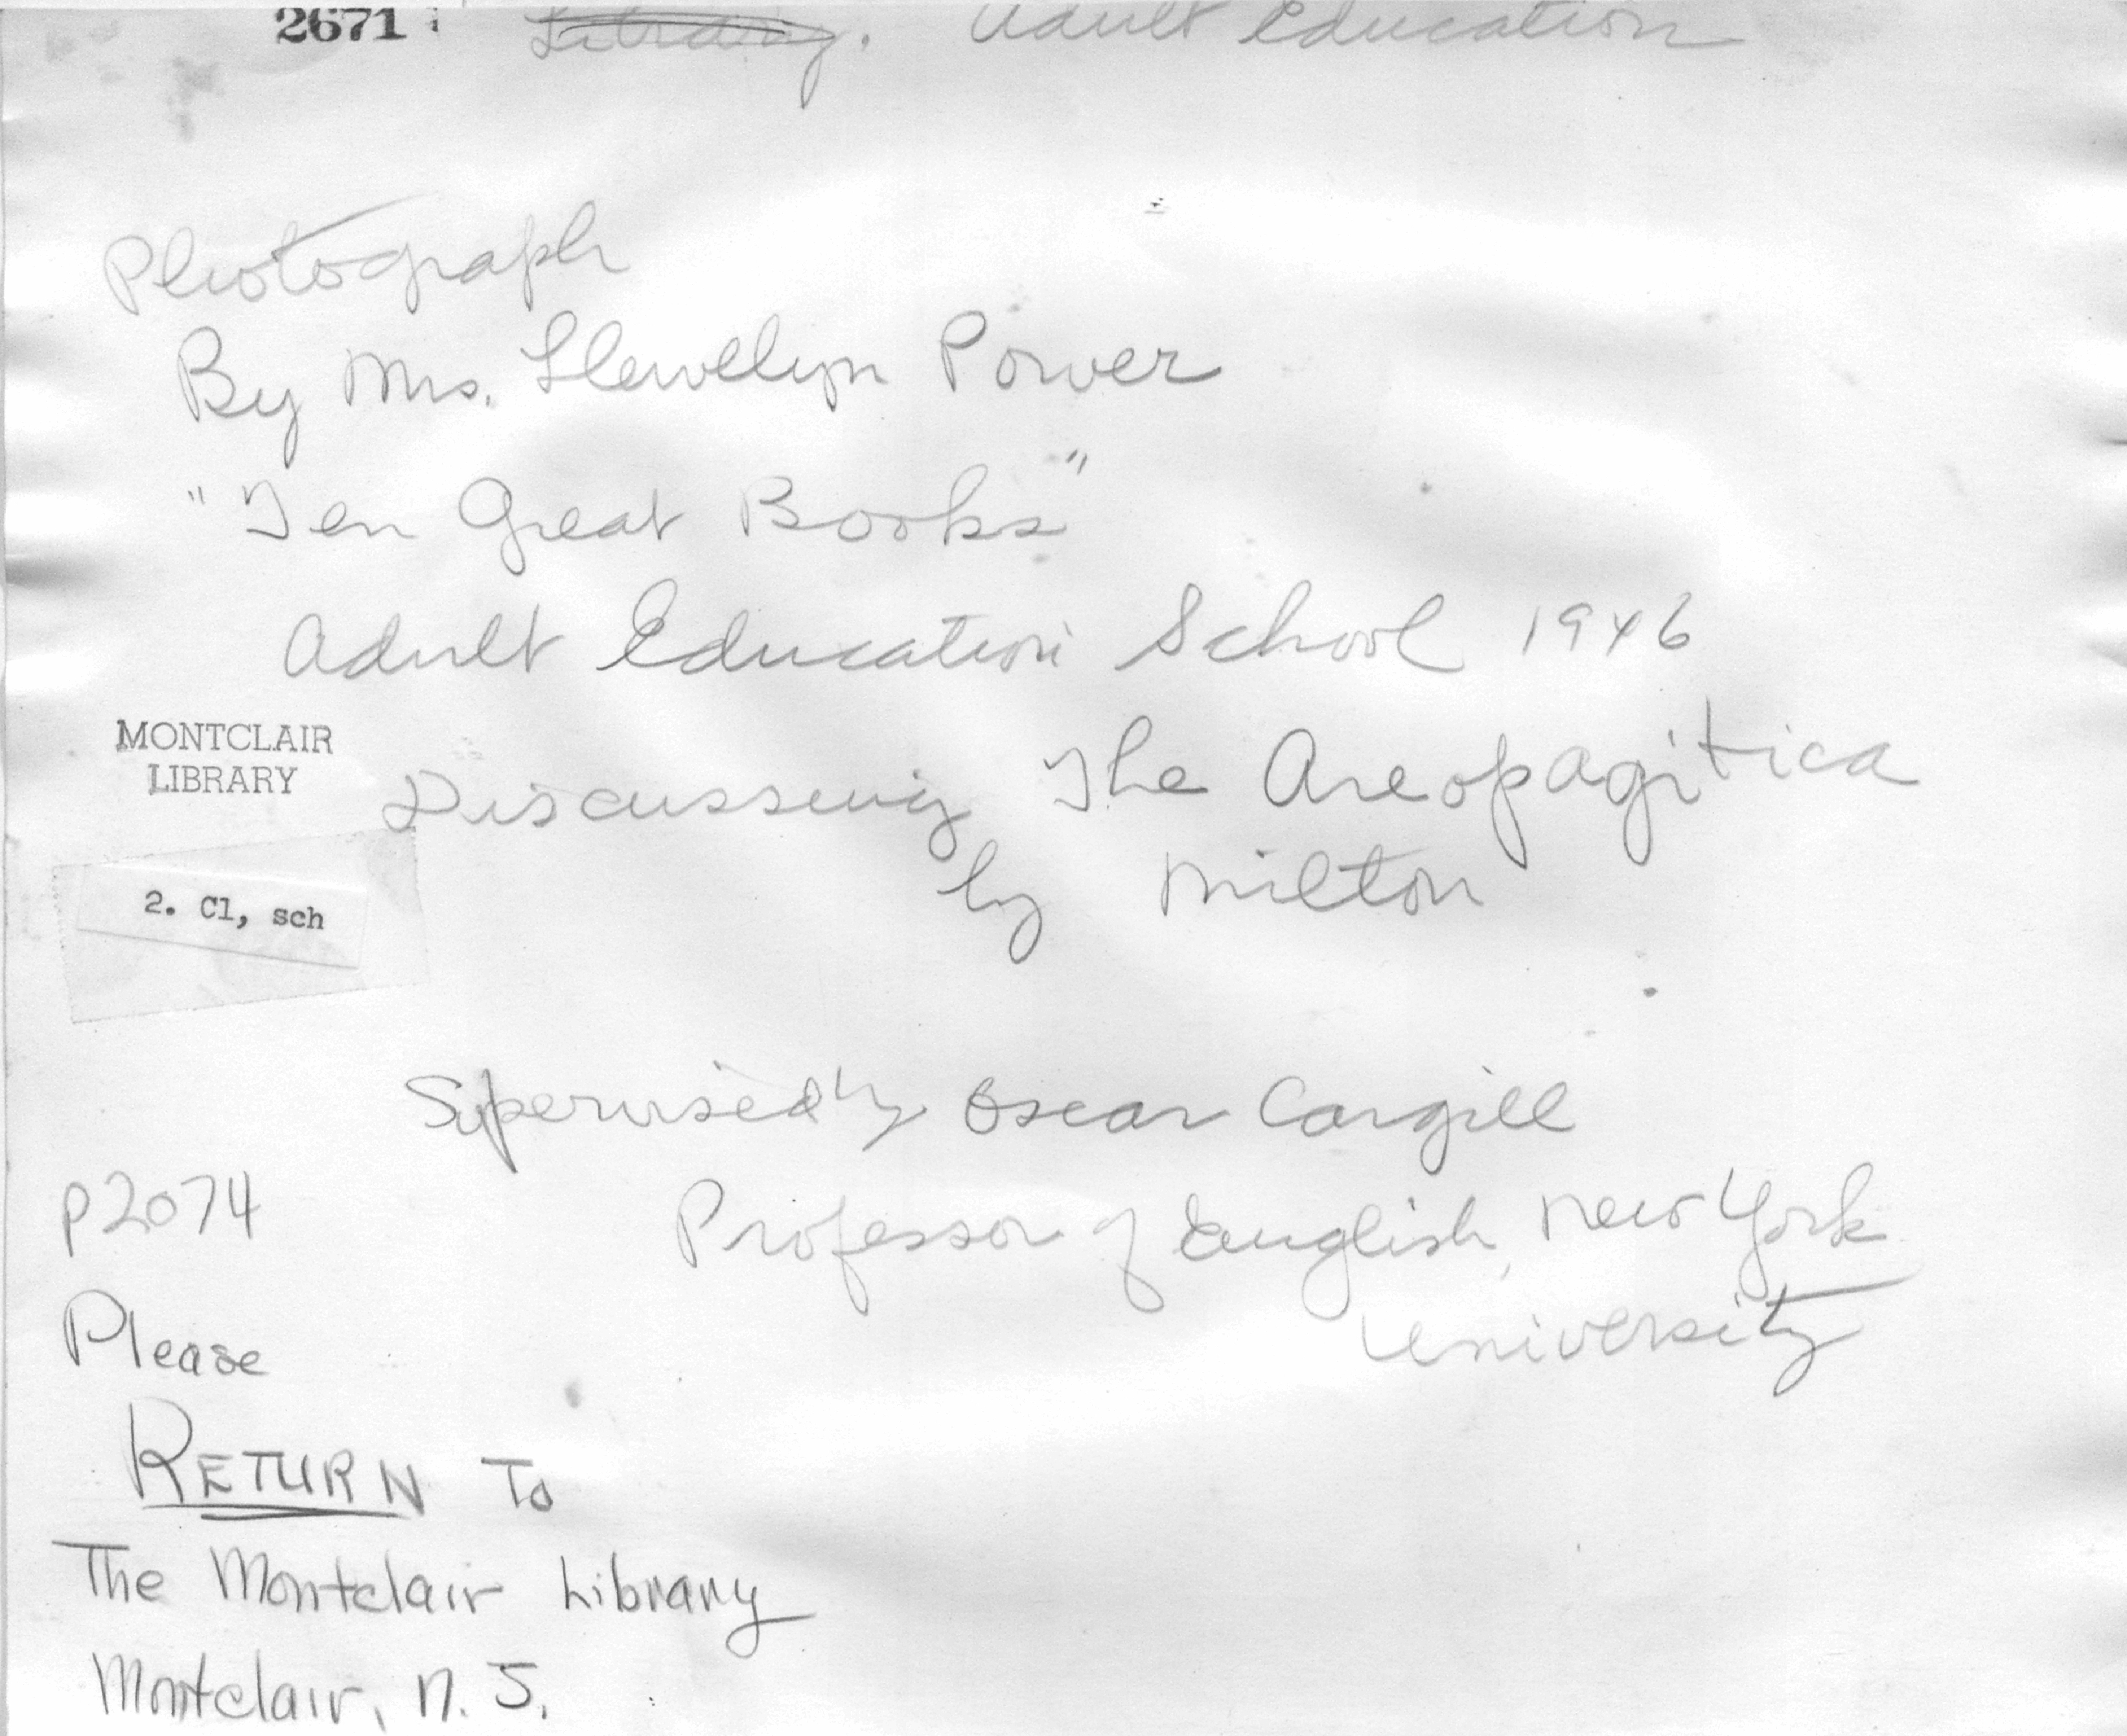 2671 Library. Adult Education
Photograph
By Mrs. Llewellyn Power
"Ten Great Books"
Adult Education School 1946
MONTCLAIR
LIBRARY
Discussing The Areopagitica
by Milton
2. Cl, sch
Supervised by Oscar Cargill
p2074
Professor of English, New York
University
Please
RETURN To
The Montclair Library
Montclair, N. J.